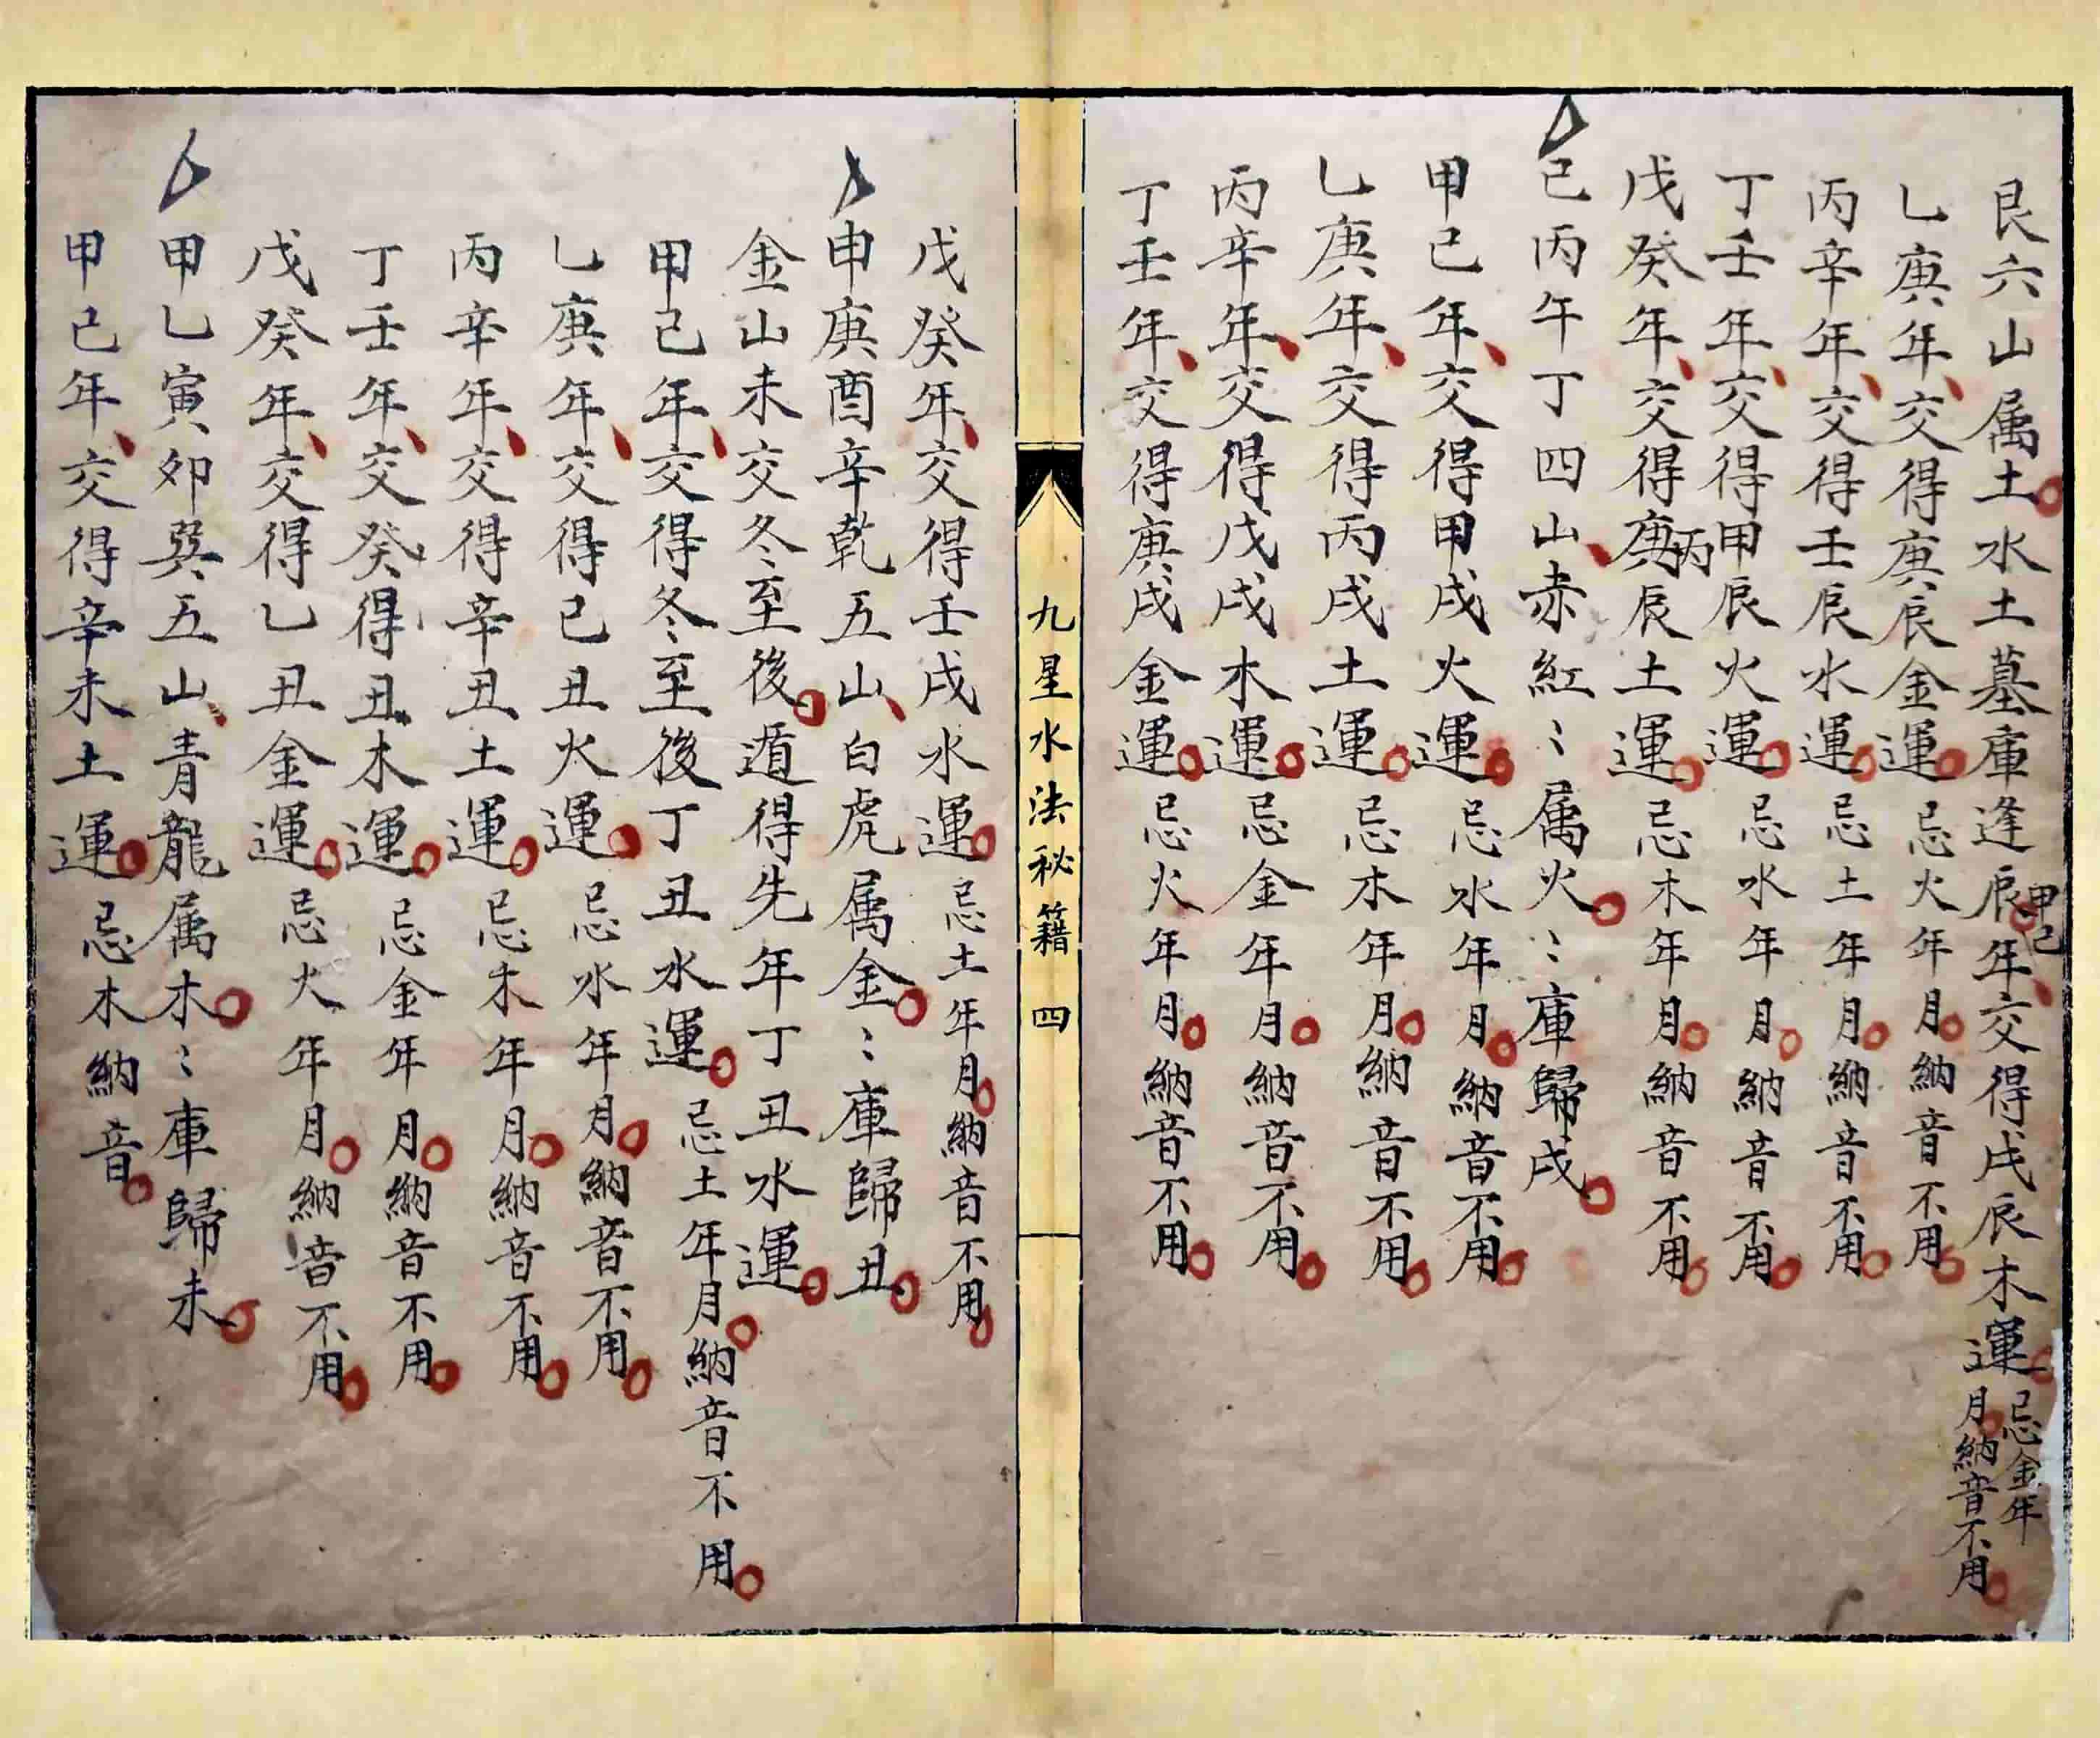 艮六山属土水土墓庫逢辰甲己年交得戊辰木運忌金年月納音不用
乙庚年交得庚辰金運忌火年月納音不用
丙辛年交得壬辰水運忌土年月納音不用
丁壬年交得甲辰火運忌水年月納音不用
戊癸年交得庚丙辰土運忌木年月納音不用
巳丙午丁四山赤紅〻属火〻庫歸戌
甲己年交得甲戌火運忌水年月納音不用
乙庚年交得丙戌土運忌木年月納音不用
丙辛年交得戊戌木運忌金年月納音不用
丁壬年交得庚戌金運忌火年月納音不用
九星水法秘籍 四
戊癸年交得壬戌水運忌土年月納音不用
申庚酉辛乾五山白虎属金〻庫歸丑
金山未交冬至後遁得先年丁丑水運
甲己年交得冬至後丁丑水運忌土年月納音不用
乙庚年交得己丑火運忌水年月納音不用
丙辛年交得辛丑土運忌木年月納音不用
丁壬年交癸得丑木運忌金年月納音不用
戊癸年交得乙丑金運忌火年月納音不用
甲乙寅夘巽五山青龍属木〻庫歸未
甲己年交得辛未土運忌木納音